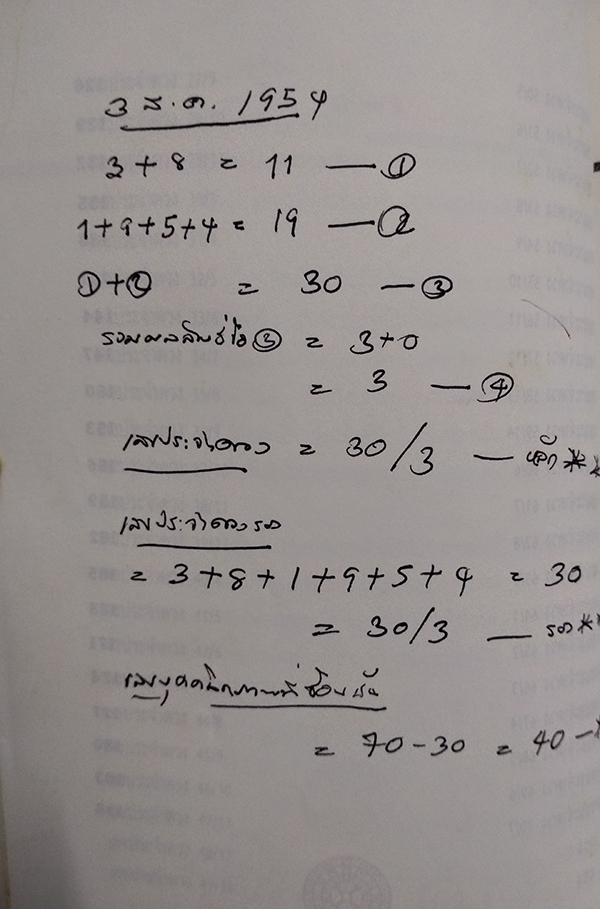 3 ส.ค. 1954
3 + 8 = 11 — ①
1+9+5+4 = 19 — ②
①+② = 30 — ③
รวมผลลัพธ์ใน ③ = 3+0
= 3 — ④
เลขประจำดวง = 30/3 — หลัก **
เลขประจำดวงรอง
= 3+8+1+9+5+4 = 30
= 30/3 — รอง **
เลขบุคลิกภาพที่ซ่อนเร้น
= 70-30 = 40 —